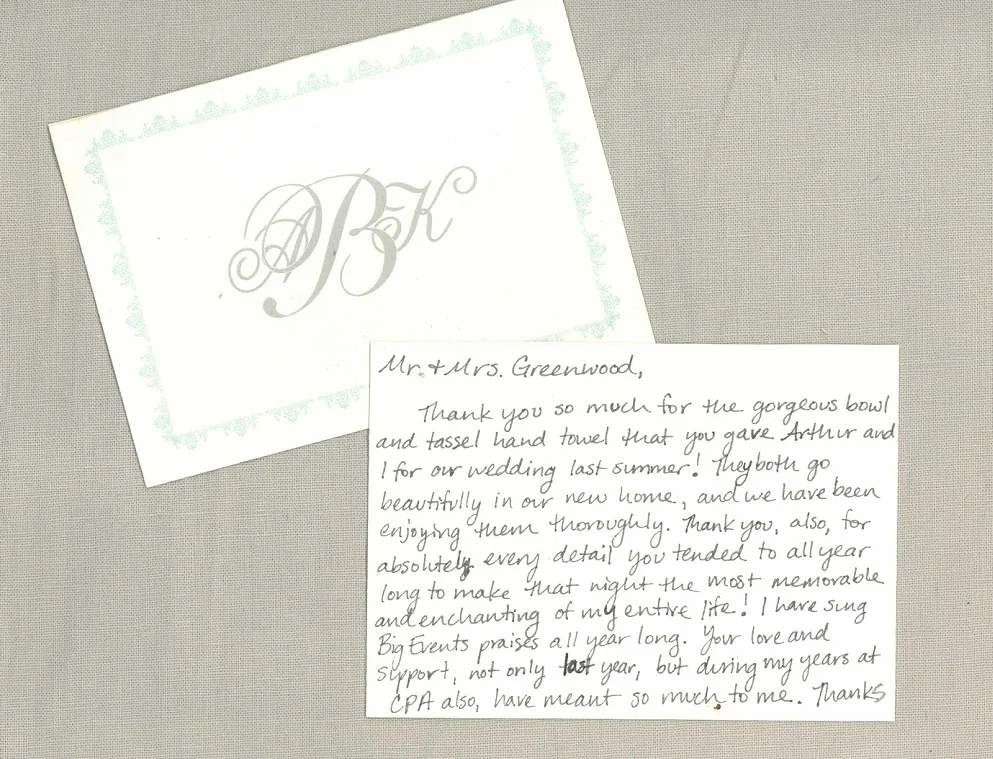 ABK
Mr. & Mrs. Greenwood,
Thank you so much for the gorgeous bowl
and tassel hand towel that you gave Arthur and
I for our wedding last summer! They both go
beautifully in our new home, and we have been
enjoying them thoroughly. Thank you, also, for
absolutely every detail you tended to all year
long to make that night the most memorable
and enchanting of my entire life! I have sung
Big Events praises all year long. Your love and
support, not only last year, but during my years at
CPA also, have meant so much to me. Thanks